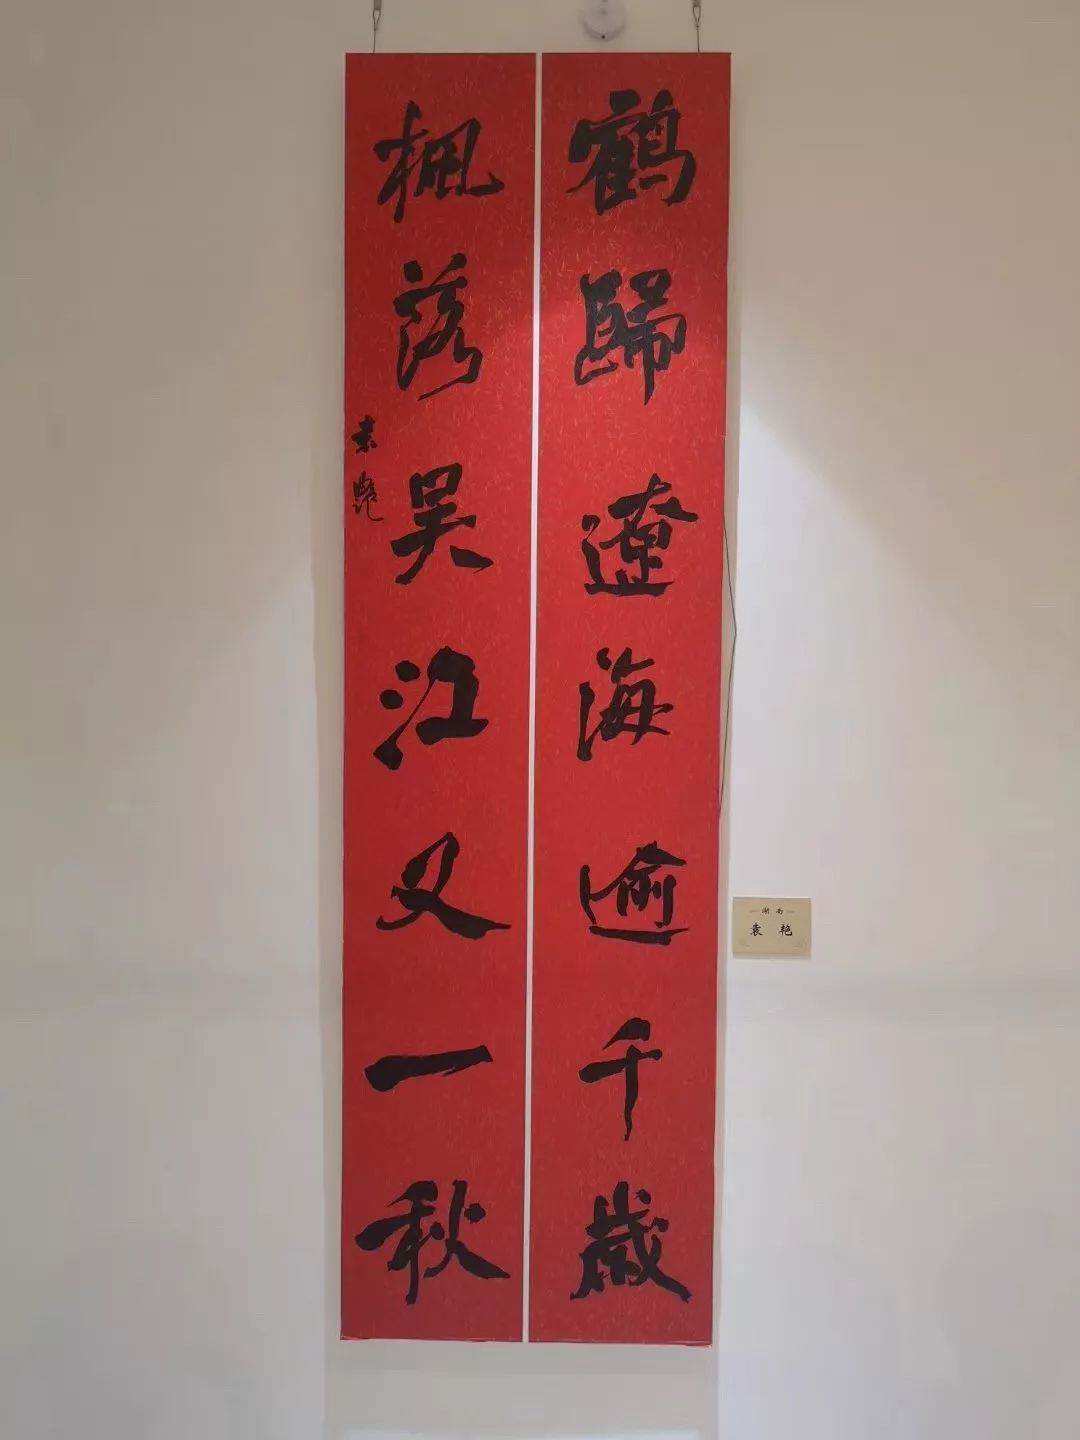 鶴歸遼海逾千歲
楓落吴江又一秋
袁艷
湖南
袁艳